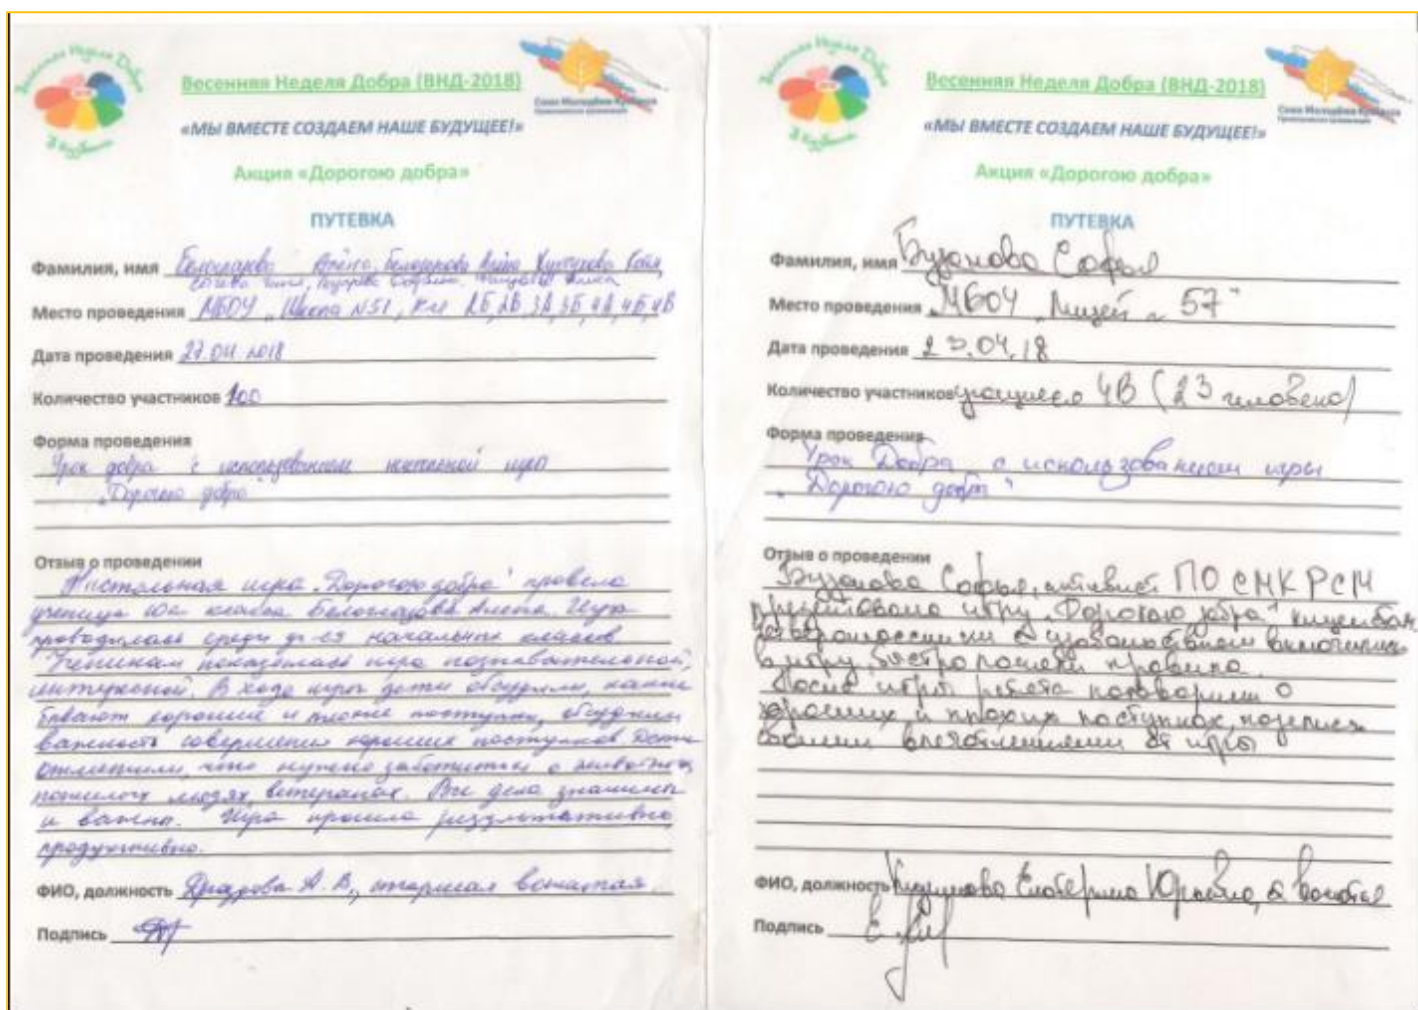 Весенняя Неделя Добра
В Кузбассе
Весенняя Неделя Добра (ВНД-2018)
Союз Молодёжи Кузбасса
«МЫ ВМЕСТЕ СОЗДАЕМ НАШЕ БУДУЩЕЕ!»
Акция «Дорогою добра»
ПУТЕВКА
Фамилия, имя Алёна, Алёна
Место проведения МБОУ „Школа №51, 3А, 3Б, 4А, 4Б, 4В
Дата проведения 27.04.2018
Количество участников 100
Форма проведения
Урок добра с использованием настольной игры
„Дорогою добра"
Отзыв о проведении
Настольная игра „Дорогою добра" провела
ученица 10а класса Белоглазова Алена. Игра
проводилась среди уч-ся начальных классов.
Ученикам показалась игра познавательной,
интересной. В ходе игры дети обсудили, какие
бывают хорошие и плохие поступки, обсудили
важность совершения хороших поступков. Дети
отметили, что нужно заботиться о животных,
пожилых людях, ветеранах. Все дела значимы
и важны. Игра прошла результативно,
продуктивно.
ФИО, должность А. В., старшая вожатая
Подпись
Весенняя Неделя Добра
В Кузбассе
Весенняя Неделя Добра (ВНД-2018)
Союз Молодёжи Кузбасса
«МЫ ВМЕСТЕ СОЗДАЕМ НАШЕ БУДУЩЕЕ!»
Акция «Дорогою добра»
ПУТЕВКА
Фамилия, имя Софья
Место проведения МБОУ „Лицей № 57"
Дата проведения .04.18
Количество участников учащиеся 4В (23 человека)
Форма проведения
Урок Добра с использованием игры
„Дорогою добра"
Отзыв о проведении
Софья, активист ПО СМК РСМ
игру „Дорогою добра"
с удовольствием включились
в игру, быстро правила.
После игры ребята поговорили о
хороших и плохих поступках, поделись
своими впечатлениями от игры
ФИО, должность Екатерина Юрьевна, вожатая
Подпись